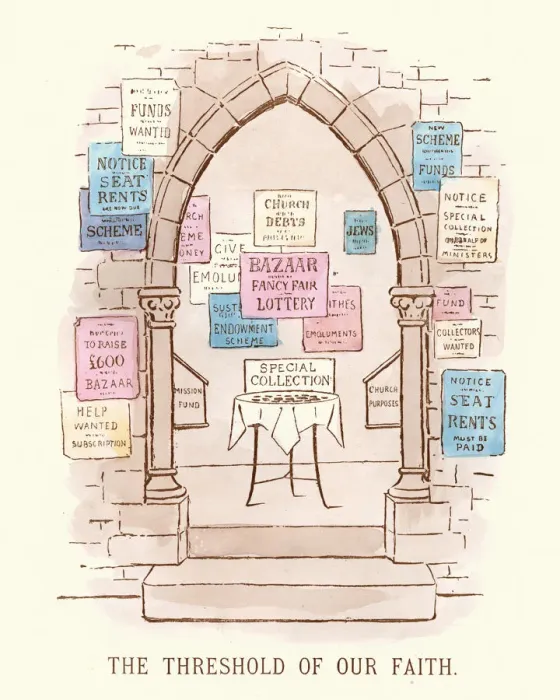 FUNDS
WANTED
NOTICE
SEAT
RENTS
ARE NOW DUE
SCHEME
RCH
EME
ONEY
GIVE
EMOLU
CHURCH
DEBTS
JEWS
BAZAAR
FANCY FAIR
LOTTERY
SUST
ENDOWMENT
SCHEME
ITHES
EMOLUMENTS
NEW
SCHEME
FUNDS
NOTICE
SPECIAL
COLLECTION
ON BEHALF OF
MINISTERS
FUND
COLLECTORS
WANTED
TO RAISE
£600
BAZAAR
HELP
WANTED
SUBSCRIPTION
MISSION
FUND
SPECIAL
COLLECTION
CHURCH
PURPOSES
NOTICE
SEAT
RENTS
MUST BE
PAID
THE THRESHOLD OF OUR FAITH.